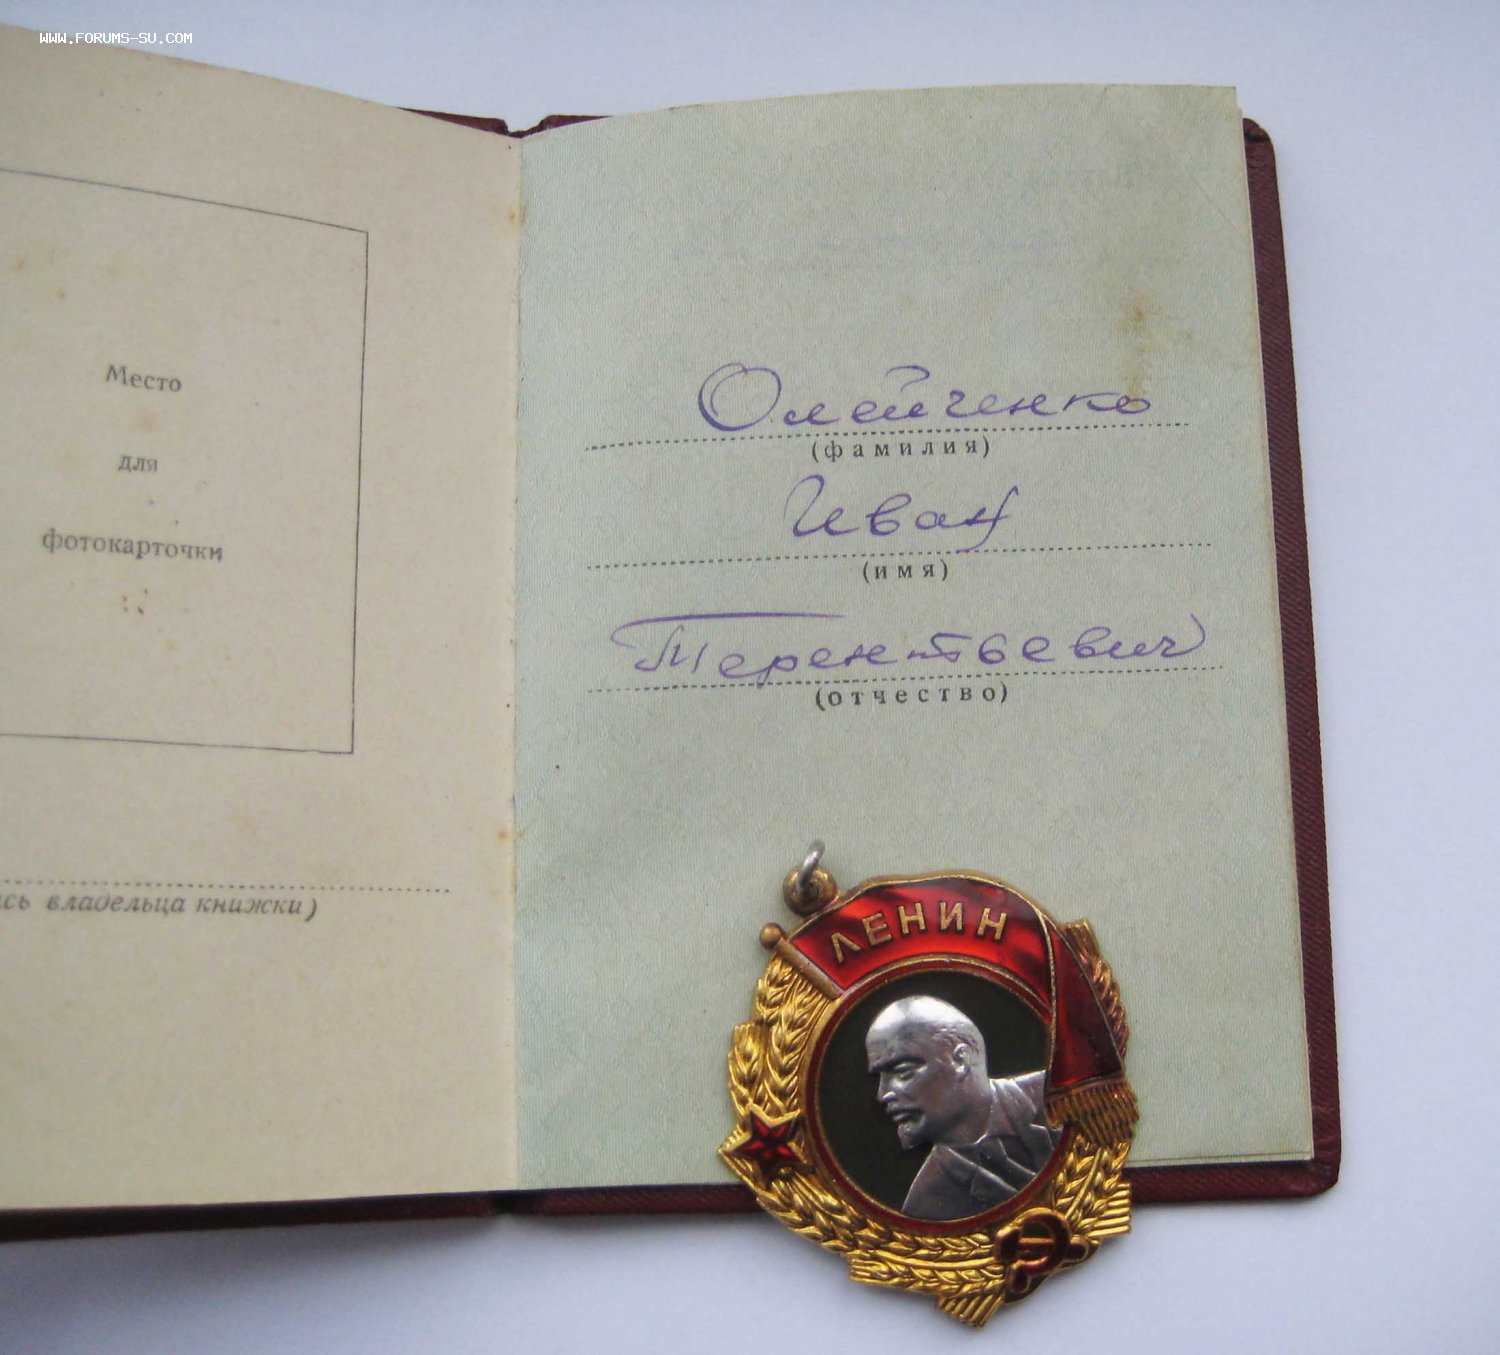 WWW.FORUMS-SU.COM
Место
для
фотокарточки
сь владельца книжки)
Олейченко
(фамилия)
Иван
(имя)
Терентьевич
(отчество)
ЛЕНИН